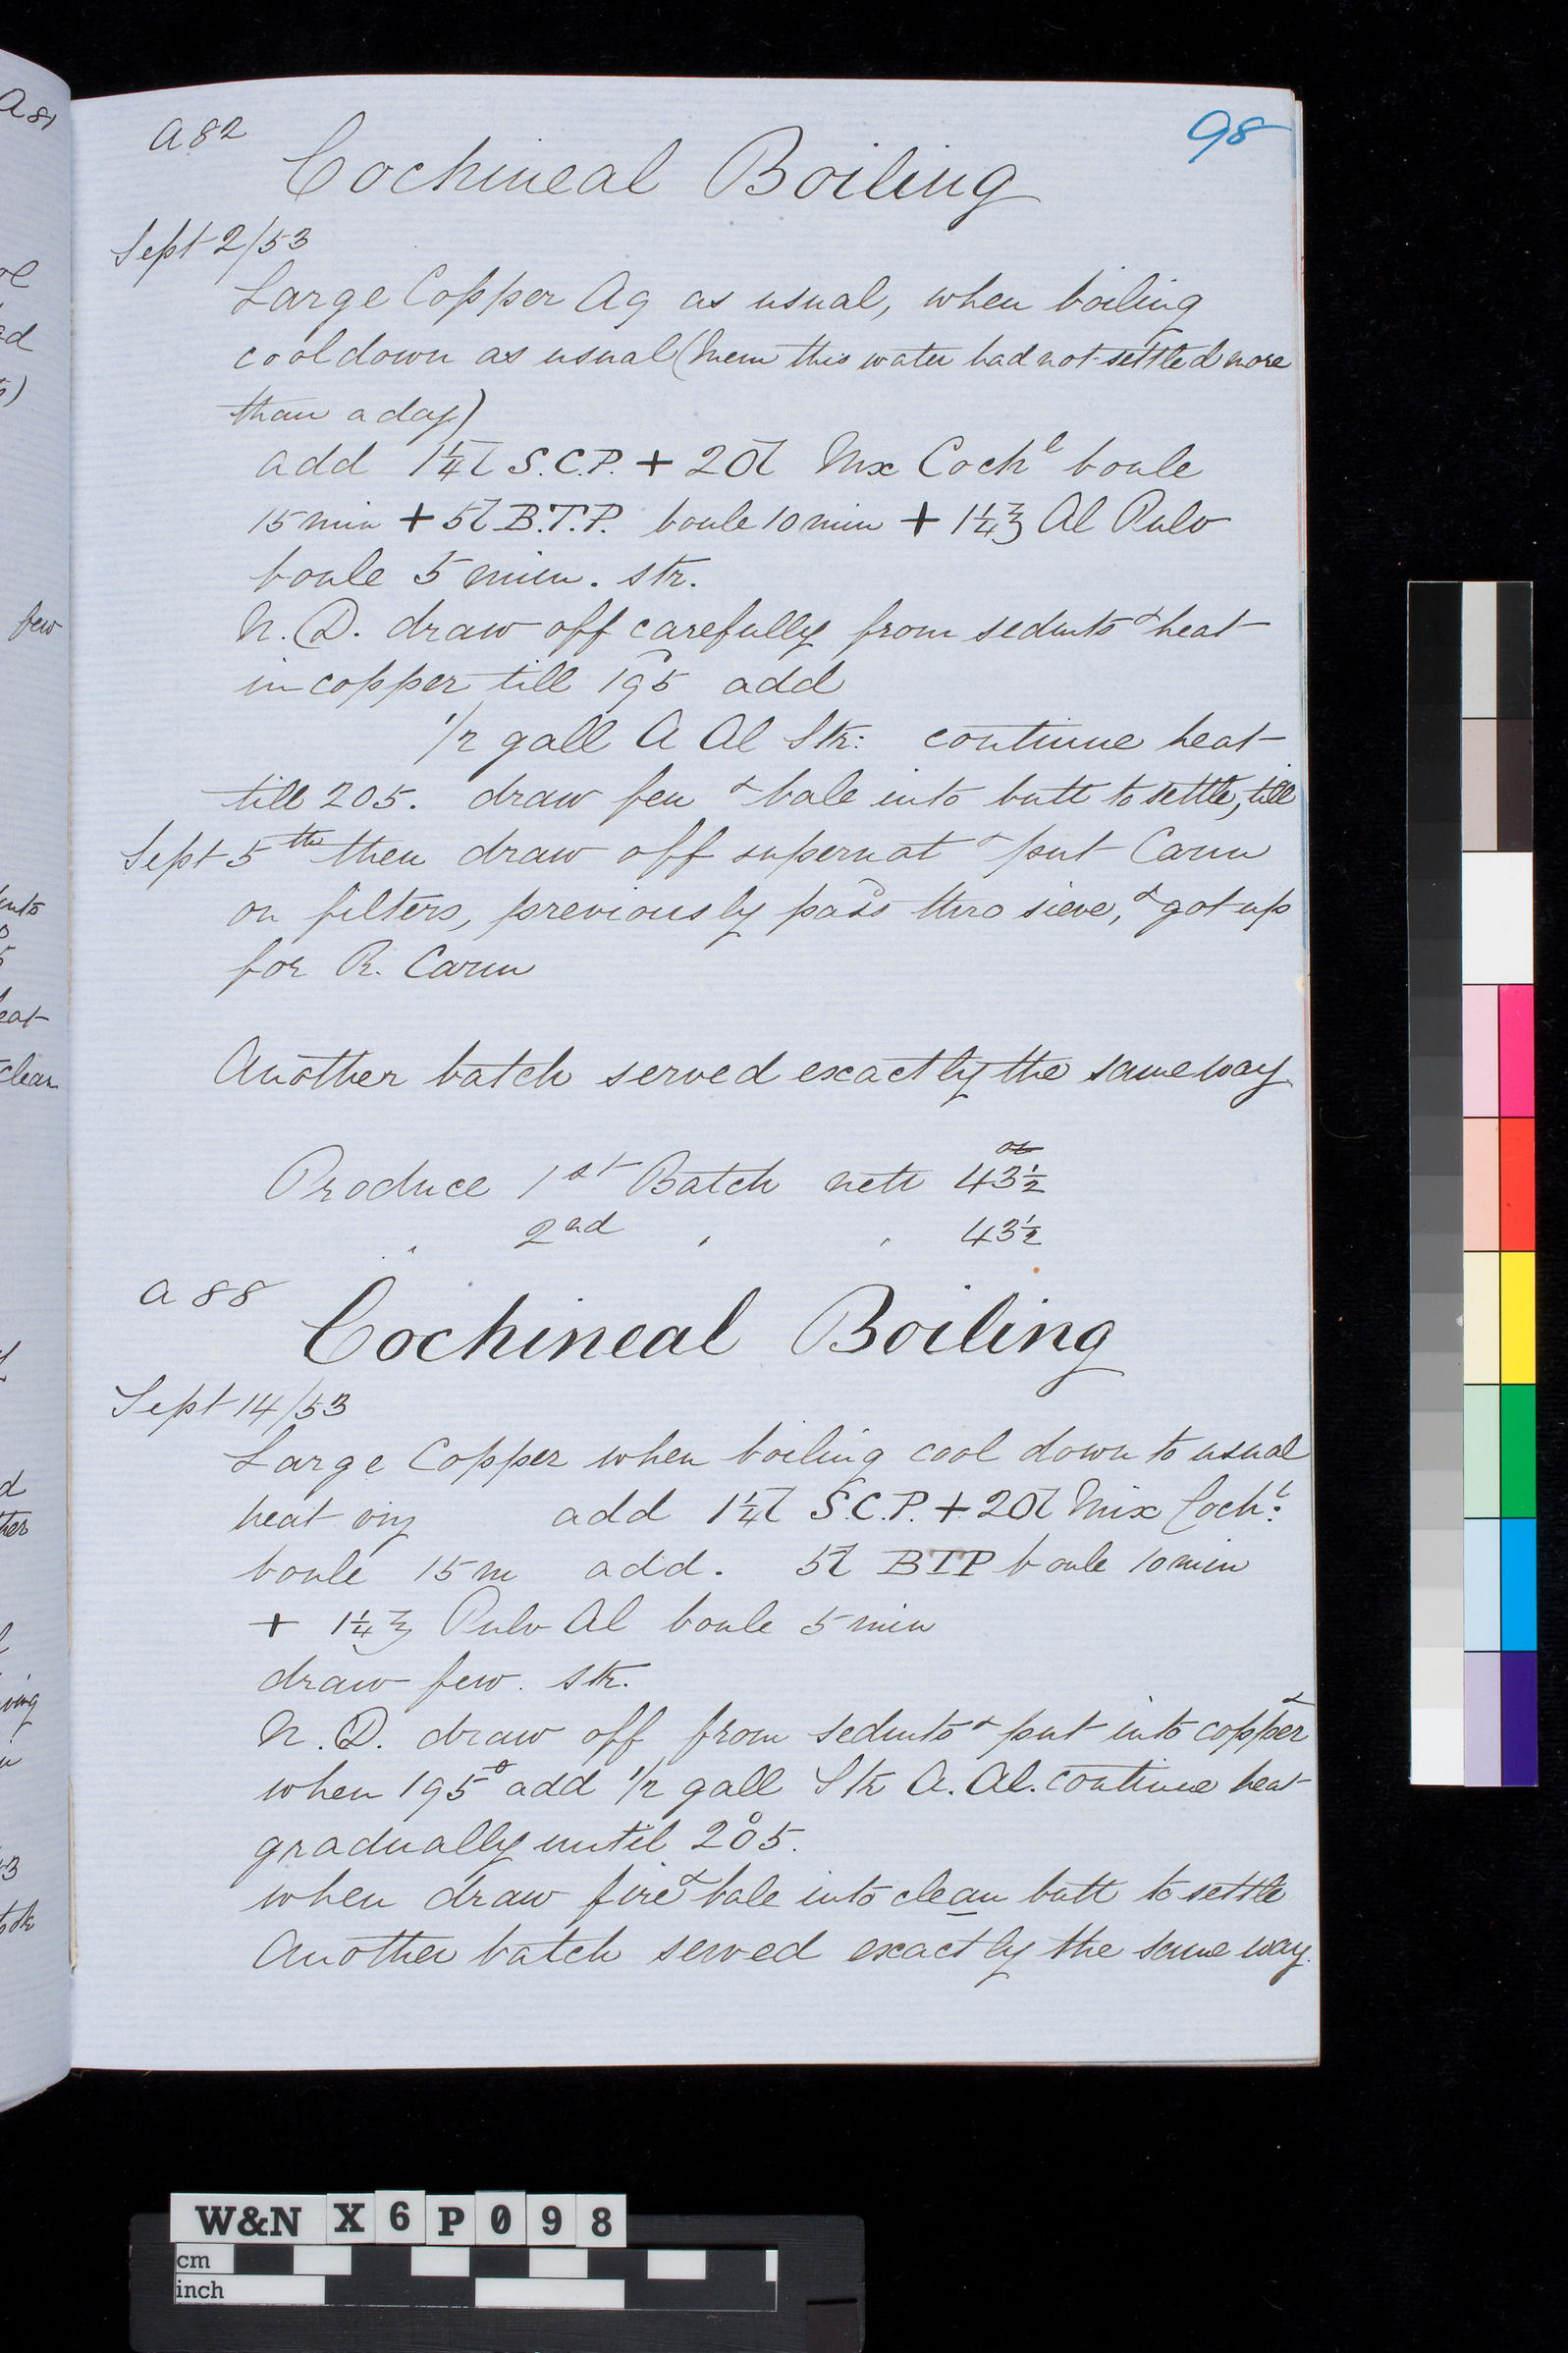 A 82
98
Cochineal Boiling
Sept 2/53
Large Copper Aq as usual, when boiling
cool down as usual (Mem this water had not settled more
than a day)
add 1¼ ℔ S.C.P. + 20 ℔ Mx Cochl boule
15 min + 5 ℔ B.T.P. boule 10 min + 1¼ ℥ Al Pulv
boule 5 min. str.
N.D. draw off carefully from sedmts & heat
in copper till 195 add
1/2 gall A Al Str: continue heat
till 205. draw few & bale into butt to settle, till
Sept 5th then draw off supernat & put Carm
on filters, previously pass thro sieve, & got up
for R. Carm
Another batch served exactly the same way
oz
Produce 1st Batch nett 43½
" 2nd , , 43½
A 88
Cochineal Boiling
Sept 14/53
Large Copper when boiling cool down to usual
heat viz add 1¼ ℔ S.C.P. + 20 ℔ Mix Cochl:
boule 15 m add. 5 ℔ BTP boule 10 min
+ 1¼ ℥ Pulv Al boule 5 min
draw few. str.
N.D. draw off from sedmts & put into copper &
when 195° add 1/2 gall Str A. Al. continue heat
gradually until 205°.
when draw fire & bale into clean butt to settle
Another batch served exactly the same way.
A 81
few
clear
W&N X6P098
cm
inch